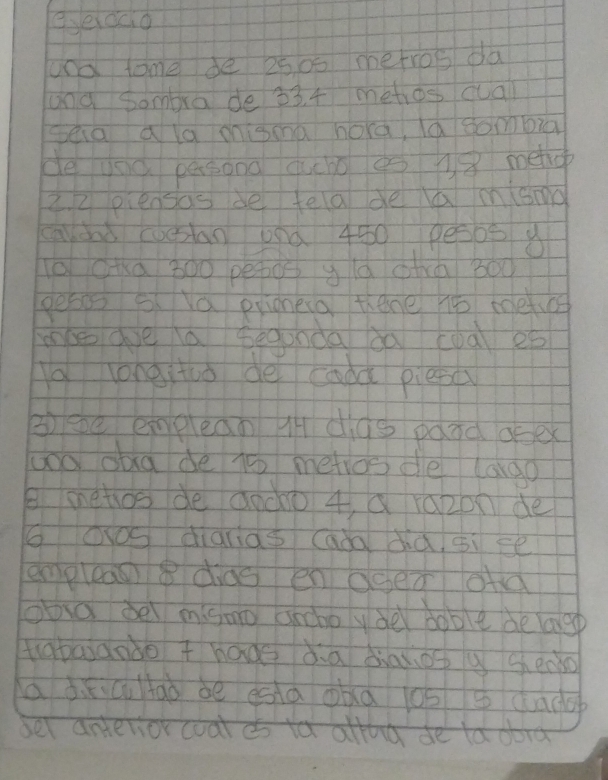 ejerocio
una tome de 25,05 metros da
una sombra de 33.4 metros cual
sera a la misma hora, la sombra
de una persona cucho es 1,8 metro
2.2 piensas de tela de la misma
calidad cuestan una 450 pesos y
la otra 300 pesos y la otra 300
pesos si la primera tiene 15 metros
mas que la segunda da cual es
la longitud de cada piesa
3) se emplean 14 dias para aser
una obra de 15 metros de largo
8 metros de ancho 4, a razon de
6 oros diarias cada dia. si se
emplean 8 dias en aser otra
obra del mismo ancho y del doble de largo
trabajando 7 horas dia diarios y siendo
la dificultad de esta obra los
del anterior cual es la altura de la obra